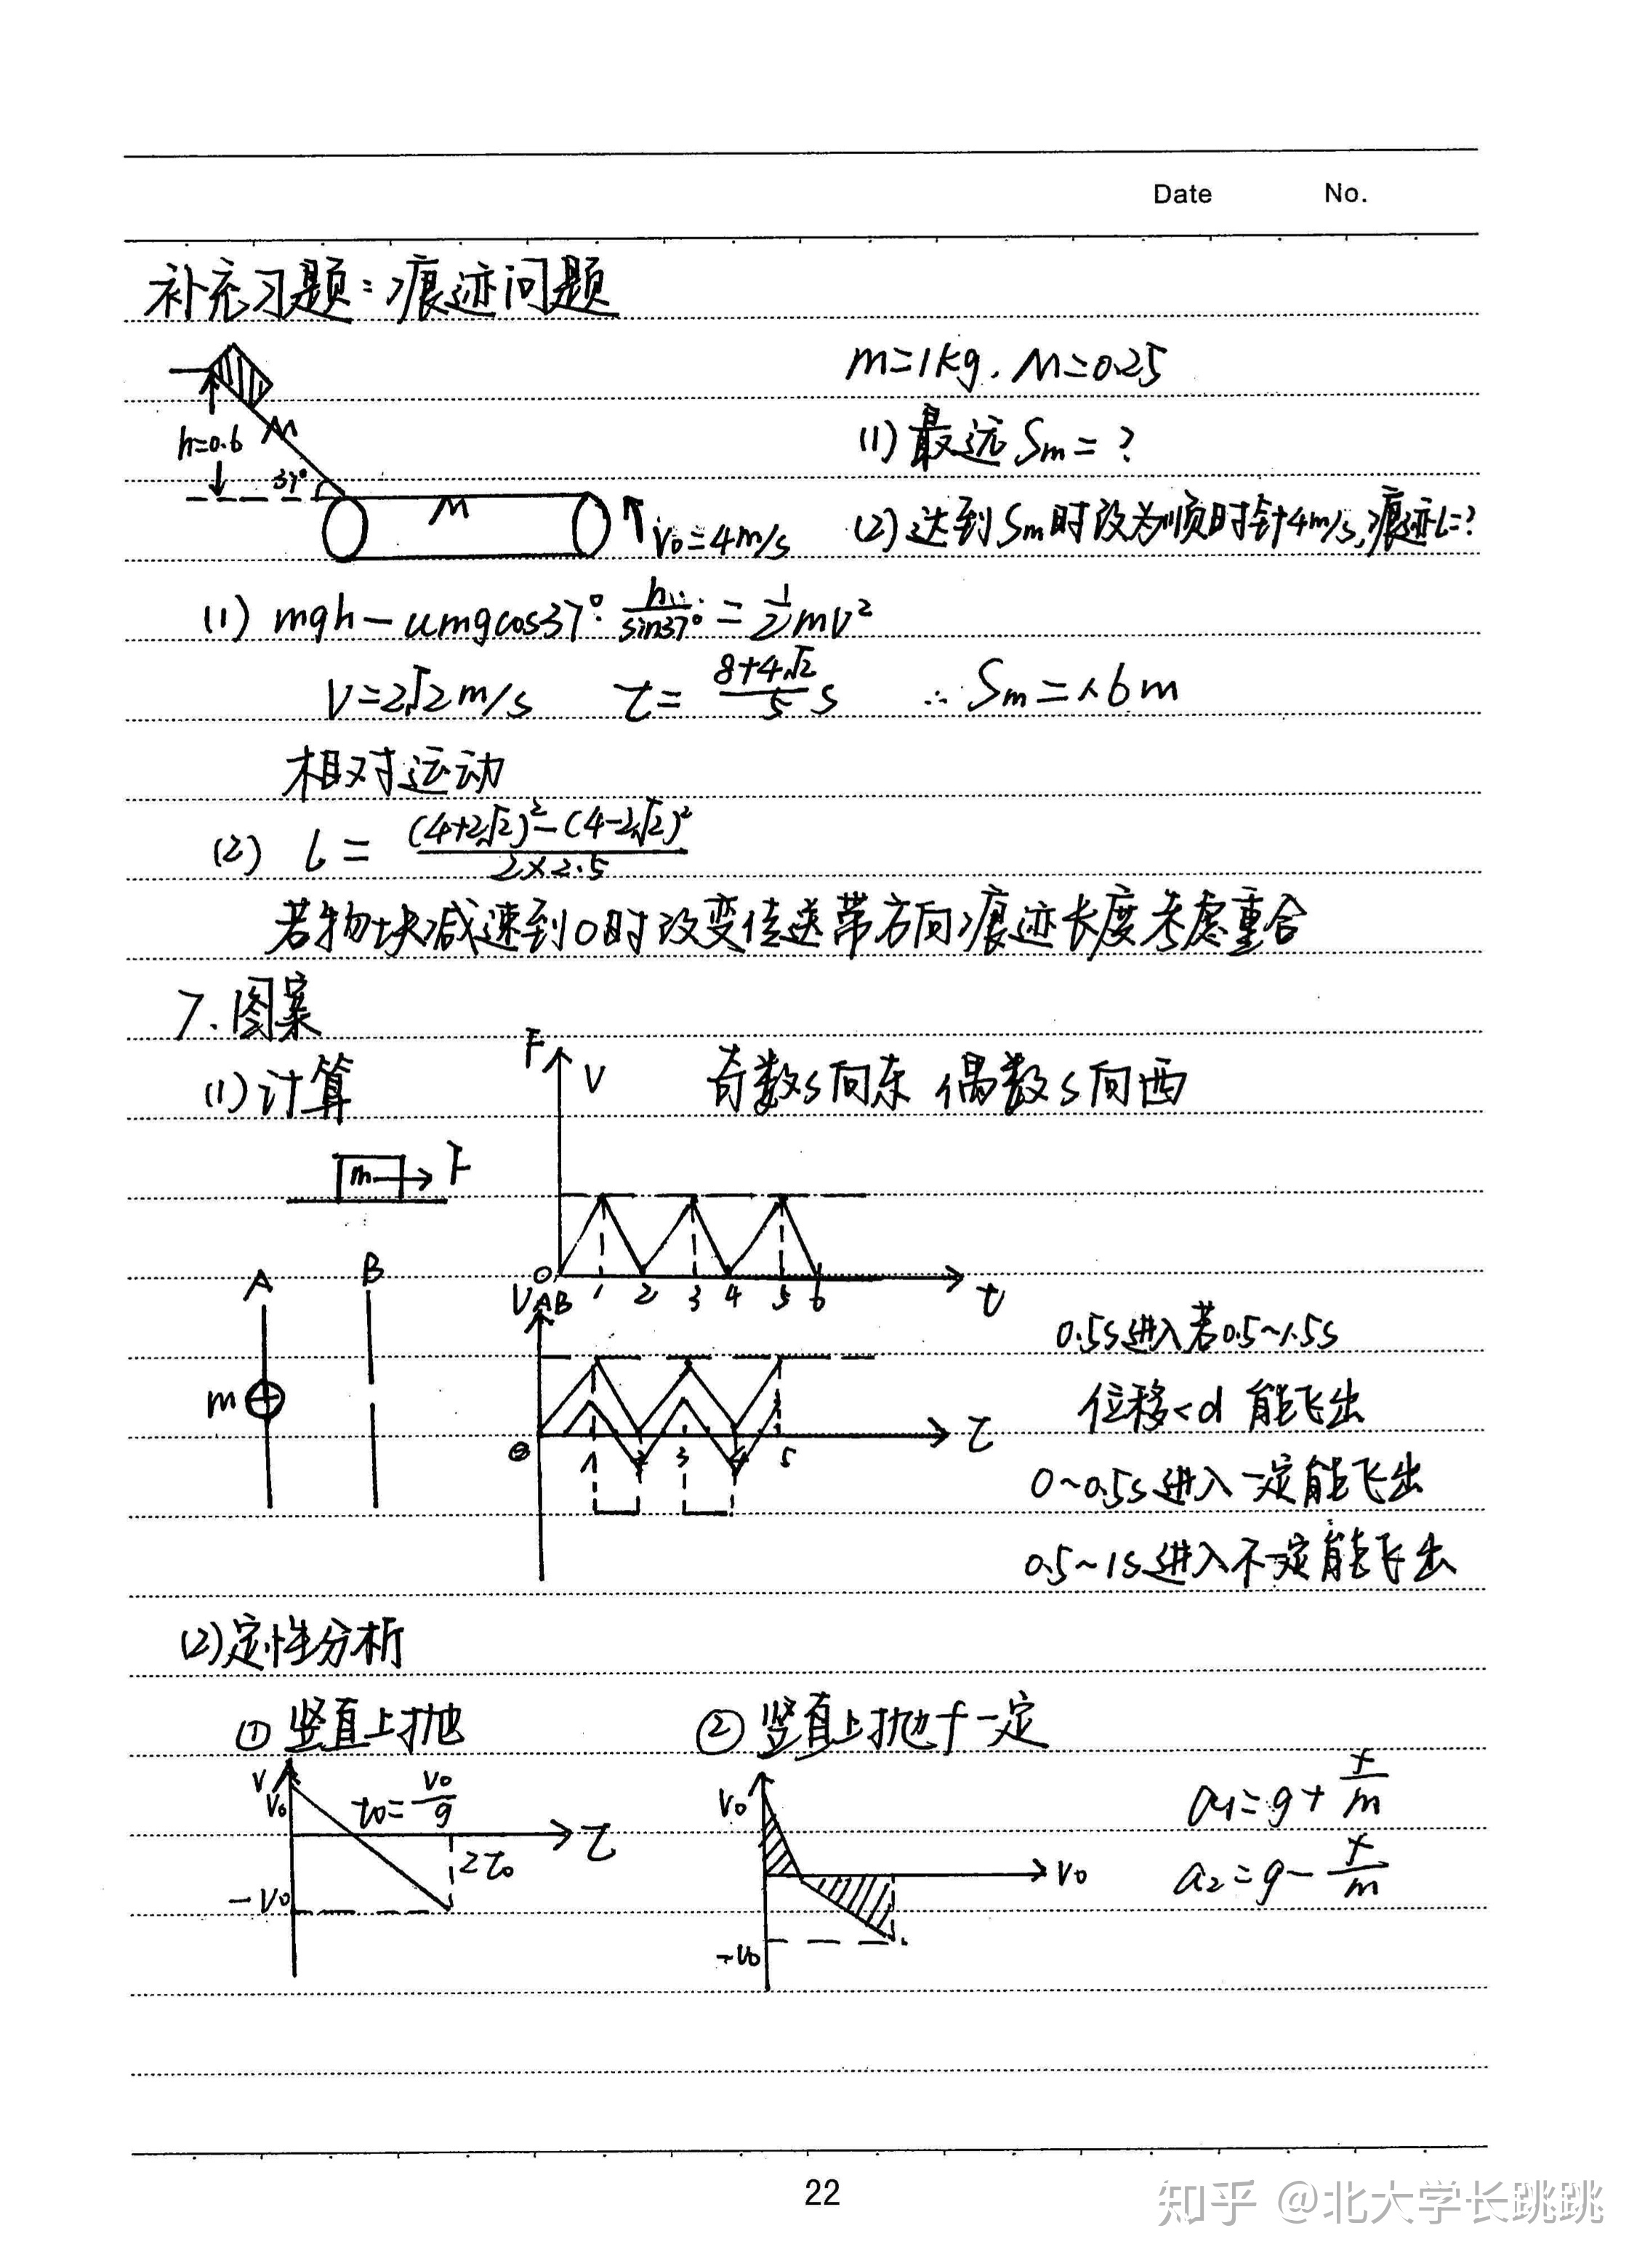 Date No.
补充习题：痕迹问题
m=1kg，μ=0.25
h=0.6
μ
37°
μ
V₀=4m/s
(1) 最远 Sm=?
(2) 达到Sm时改为顺时针4m/s，痕迹L=?
(1) mgh-umgcos37°·h/sin37°=1/2mv²
V=2√2m/s t=(8+4√2)/5 s ∴Sm=1.6m
相对运动
(2) L=((4+2√2)²-(4-2√2)²)/(2×2.5)
若物块减速到0时改变传送带方向痕迹长度考虑重合
7.图案
(1)计算
F V
奇数s向东 偶数s向西
m F
O 1 2 3 4 5 6 t
A B
m
VAB
0 1 2 3 4 5 t
0.5s进入若0.5~1.5s
位移<d 能飞出
0~0.5s进入一定能飞出
0.5~1s进入不一定能飞出
(2)定性分析
① 竖直上抛
② 竖直上抛f一定
V
V₀
t₀=V₀/g
t
2t₀
-V₀
V₀
V₀
-V₀
a₁=g+f/m
a₂=g-f/m
22
知乎 @北大学长跳跳